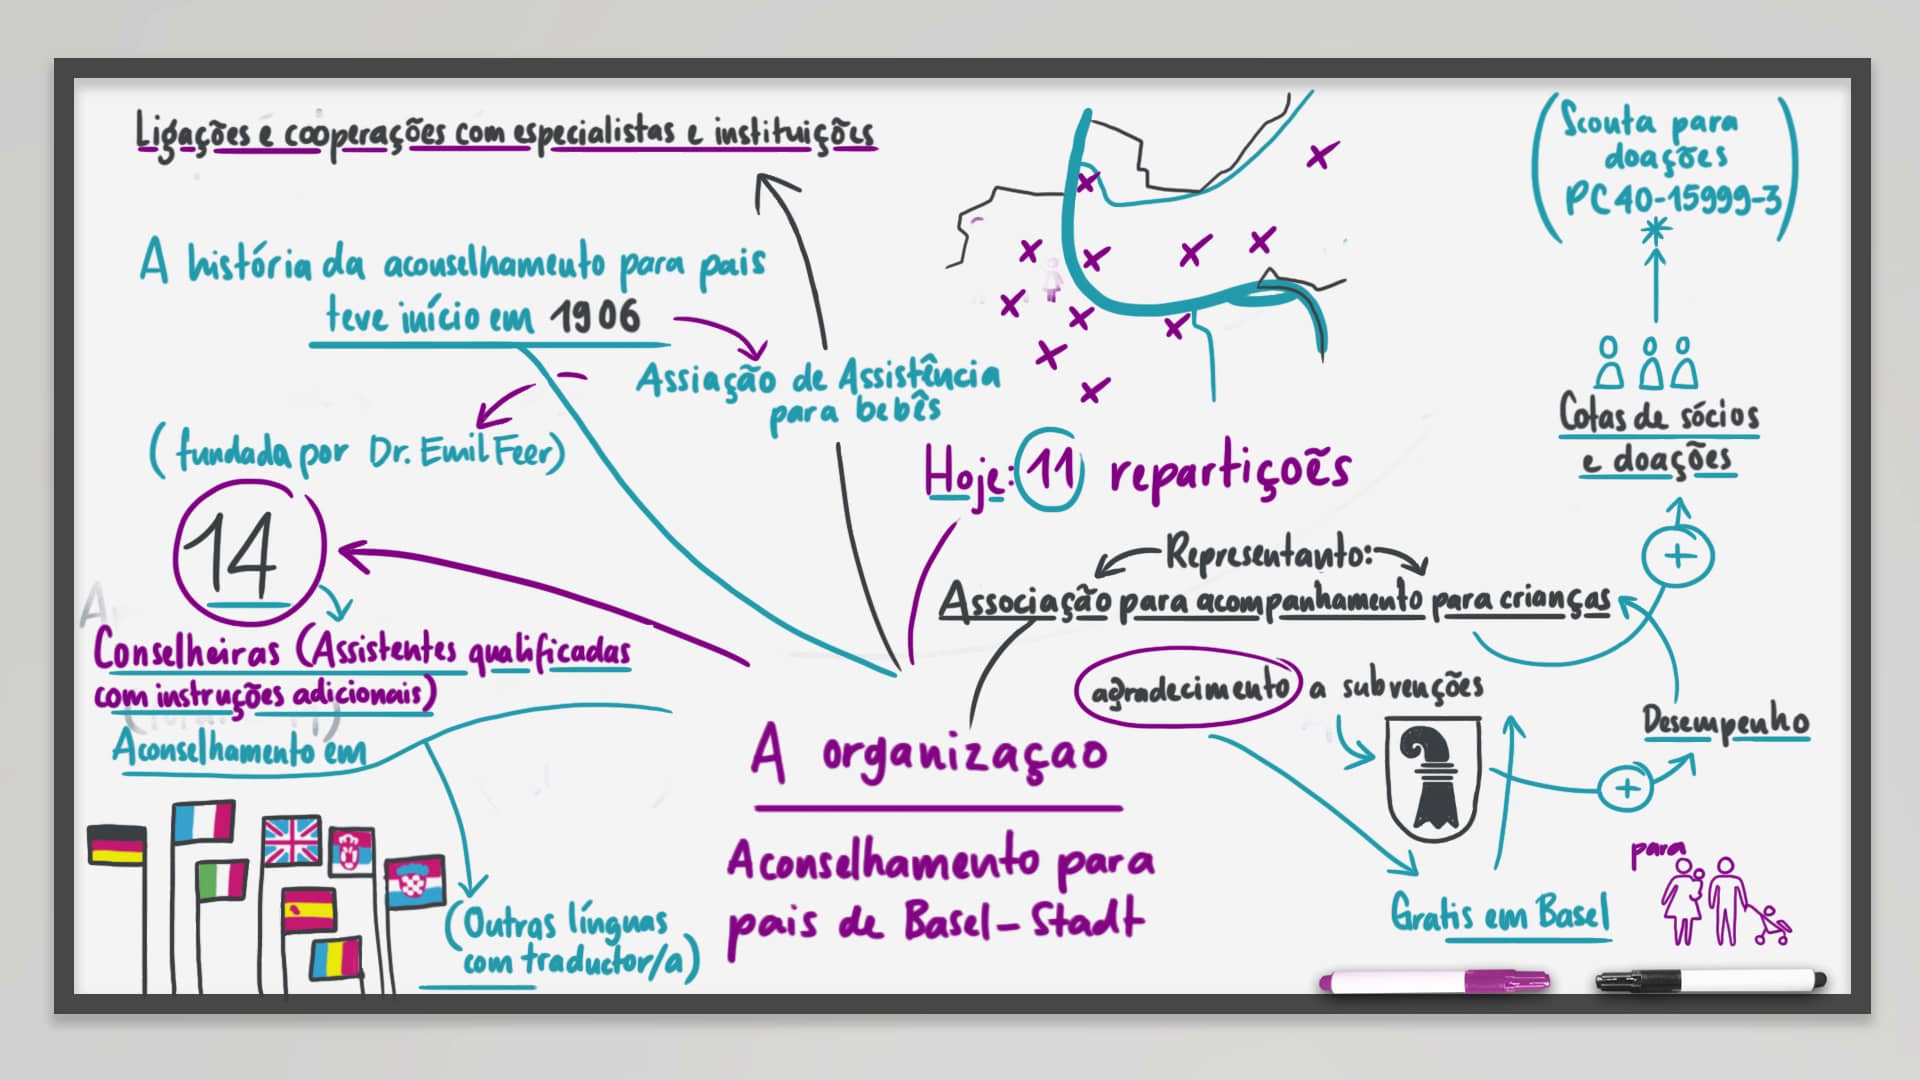 Ligações e cooperações com especialistas e instituições
A história da aconselhamento para pais
teve início em 1906
Assiação de Assistência
para bebês
(fundada por Dr. Emil Feer)
14
Conselheiras (Assistentes qualificadas
com instruções adicionais)
Aconselhamento em
(Outras línguas
com traductor/a)
Hoje: 11 repartiçoẽs
Representanto:
Associação para acompanhamento para crianças
agradecimento a subvenções
A organizaçao
Aconselhamento para
pais de Basel-Stadt
Scouta para
doações
PC 40-15999-3
Cotas de sócios
e doações
Desempenho
para
Gratis em Basel